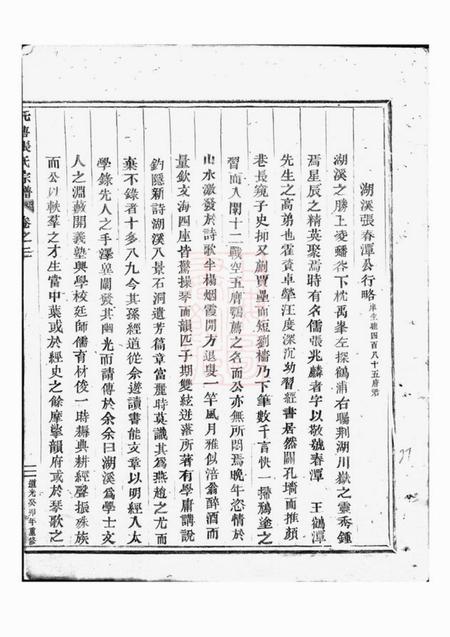 湖溪張春潭公行略 庠生雍四百八十五府君
湖溪之勝上凌蟠谷下枕禹峯左探鶴浦右矚荆湖川嶽之靈秀鍾
焉星辰之精英聚焉時有名儒張兆麟者字以敬號春潭 王鶴潭
先生之高弟也霍賁卓犖汪度深沉幼習經書居然闢孔墻而推顏
巷長窺子史抑又劘賈壘而短劉檣乃下筆數千言快一掃鴉塗之
習而入闈十二戰空五膺鶚薦之名而公亦無所悶焉晚年恣情於
山水激發於詩歌半榻烟霞閒方退叟一竿風月雅似涪翁醉酒而
量欽文海四座皆驚操琴而韻匹子期雙絃迸落所著有學庸講說
鈎隱新詩湖溪八景石洞遺芳篇章富麗時莫識其爲燕趙之尤而
棄不錄者十多八九今其孫經道從余遊讀書能支章以明經入太
學錄先人之手澤異闡發其幽光而請傳於余余曰湖溪爲學士文
人之淵藪開義塾興學校延師儒育材俊一時耨典耕經聲振殊族
而公以軼羣之才生當中葉或於經史之餘摩挲韻府或於琴歌之
張氏宗譜 卷之二
道光癸卯年重修